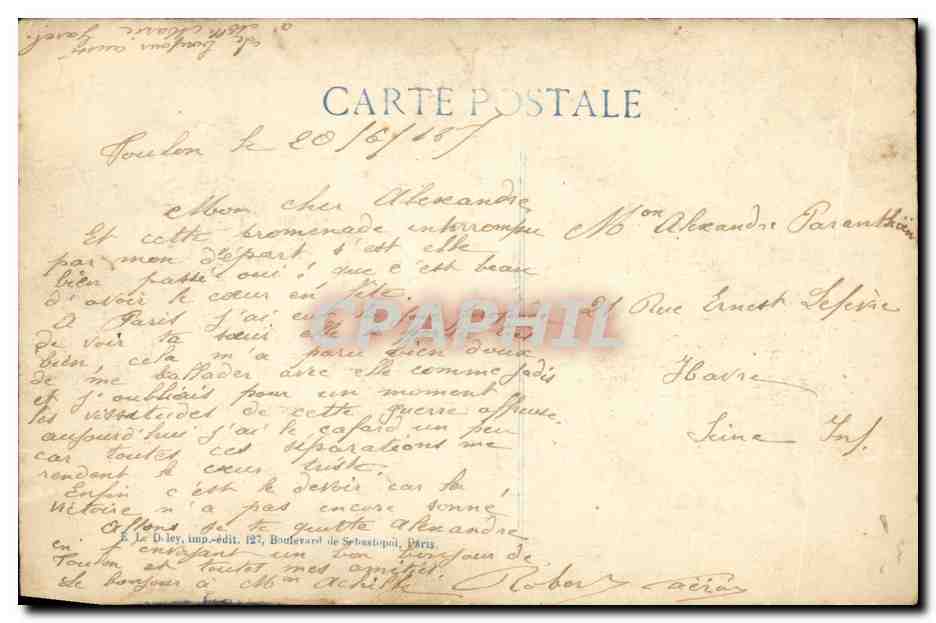 le bonjour aussi
à Melle Marie
CARTE POSTALE
Toulon le 20/6/187
Mon cher Alexandre
Et cette promenade interrompue
par mon départ s'est elle
bien passé oui! que c'est beau
d'avoir le cœur en fête.
A Paris j'ai eu
de voir ta sœur elle très
bien, cela m'a paru bien doux
de me ballader avec elle comme jadis
et j'oubliais pour un moment
les vissitudes de cette guerre affreuse.
aujourd'hui j'ai le cafard un peu
car toutes ces séparations me
rendent le cœur triste.
Enfin c'est le devoir car la
victoire n'a pas encore sonné
Allons je te quitte Alexandre
en t'envoyant un bon bonjour de
Toulon et toutes mes amitiés.
Le bonjour à Mon Achille
Robert
E. Le Deley, imp.-édit. 127, Boulevard de Sébastopol, Paris.
Mon Alexandre Paranthoën
21 Rue Ernest Lefèvre
Havre
Seine Inf.
CPAPHIL